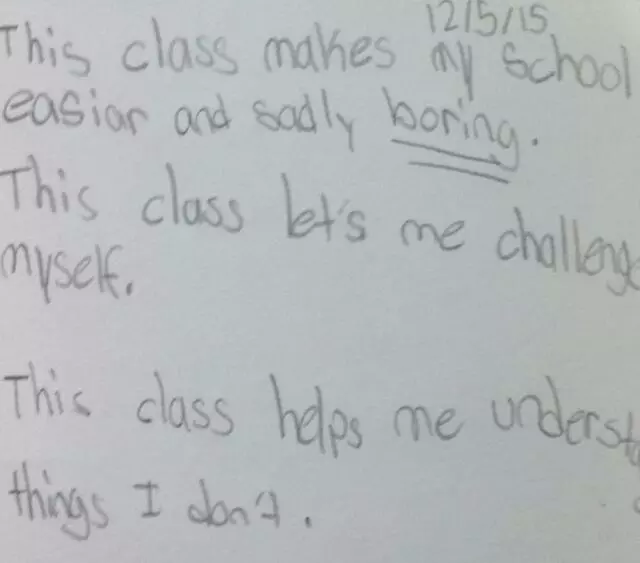 12/5/15
This class makes my school
easiar and sadly boring.
This class let's me challenge
myself.
This class helps me understa
things I don't.